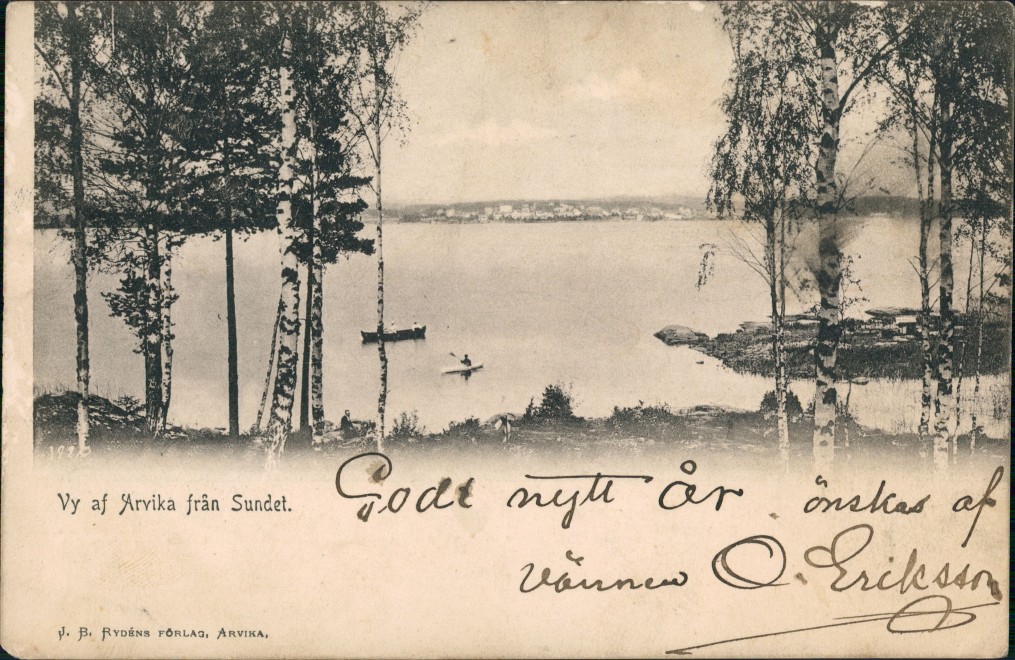 Vy af Arvika från Sundet.
Godt nytt år önskas af
vännen O. Eriksson
J. B. RYDÉNS FÖRLAG, ARVIKA.